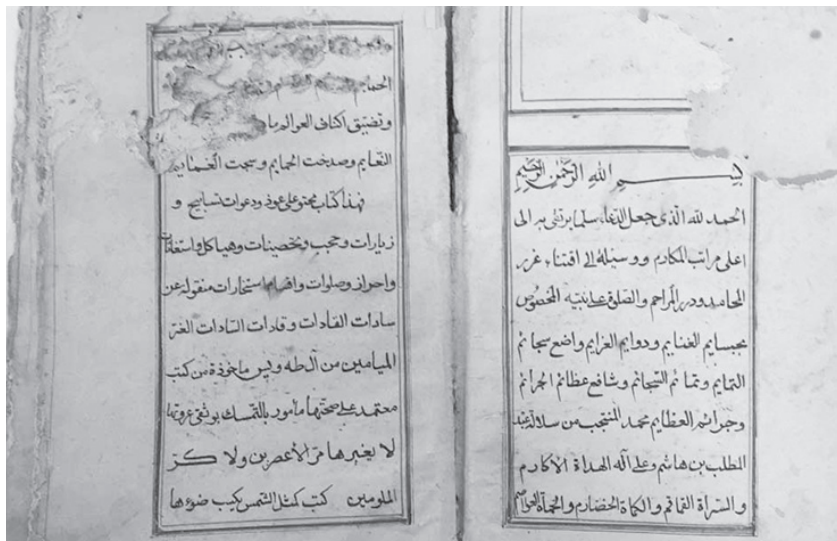 بسم الله الرحمن الرحيم
الحمد لله الذى جعل الدعاء سلما يرتقى به الى
اعلى مراتب المكارم ووسيلة إلى اقتناء غرر
المحامد ودرر المراحم والصلوة على نبيه المخصوص
بجسايم الغنايم ودوايم العزايم واضع سجائم
التمايم وتمائم السجائم وشافع عظائم الجرائم
وجرائم العظايم محمد المنتجب من سلالة عبد
المطلب بن هاشم وعلى آله الهداة الاكارم
والسراة القماقم والكماة الخضارم والحماة العواصم
وتضيق اكناف العوالم ما
النعايم وصدحت الحمايم وسجت الغمايم
فهذا كتاب محتو على عوذ ودعوات تسابيح و
زيارات وحجب وتحصينات وهياكل واستغاثات
واحراز وصلوات واقسام استخارات منقولة عن
سادات القادات وقادات السادات الغر
الميامين من آل طه ويس ماخوذة من كتب
معتمد على صحتها مأمور بالتمسك بوثقى عروتها
لا يغيرها مر الأعصرين ولا كر
الملومين كتب كمثل الشمس يكتب ضوءها